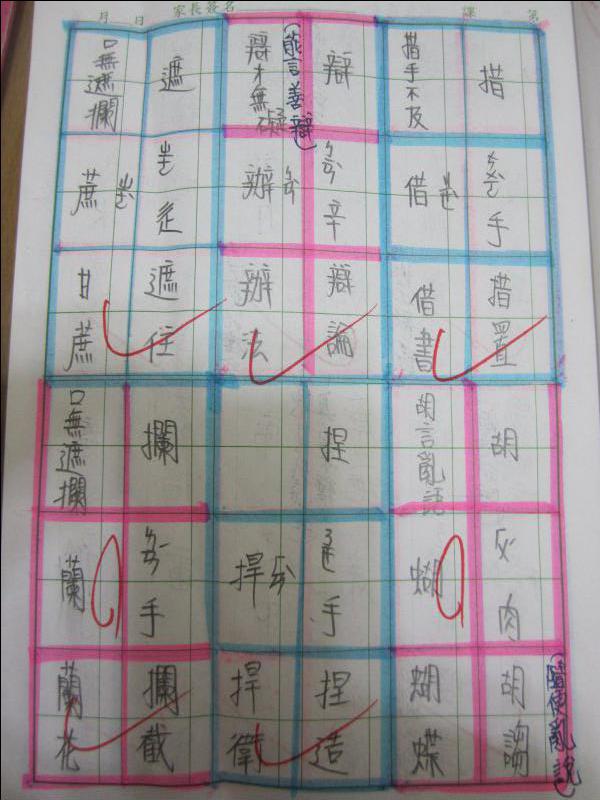 第 課 家長簽名 月 日
措
ㄘㄨㄛˋ 手
措置
措手不及
借 ㄐㄧㄝˋ
借書
辯
ㄅㄧㄢˋ 辛
辯論
(能言善辯)
辯才無礙
辦 ㄅㄢˋ
辦法
遮
ㄓㄜ 辵
遮住
口無遮攔
蔗 ㄓㄜˋ
甘蔗
胡
ㄏㄨˊ 肉
胡謅
(隨便亂說)
胡言亂語
蝴
蝴蝶
捏
ㄋㄧㄝ 手
捏造
捍 ㄏㄢˋ
捍衛
攔
ㄌㄢˊ 手
攔截
口無遮攔
蘭
蘭花